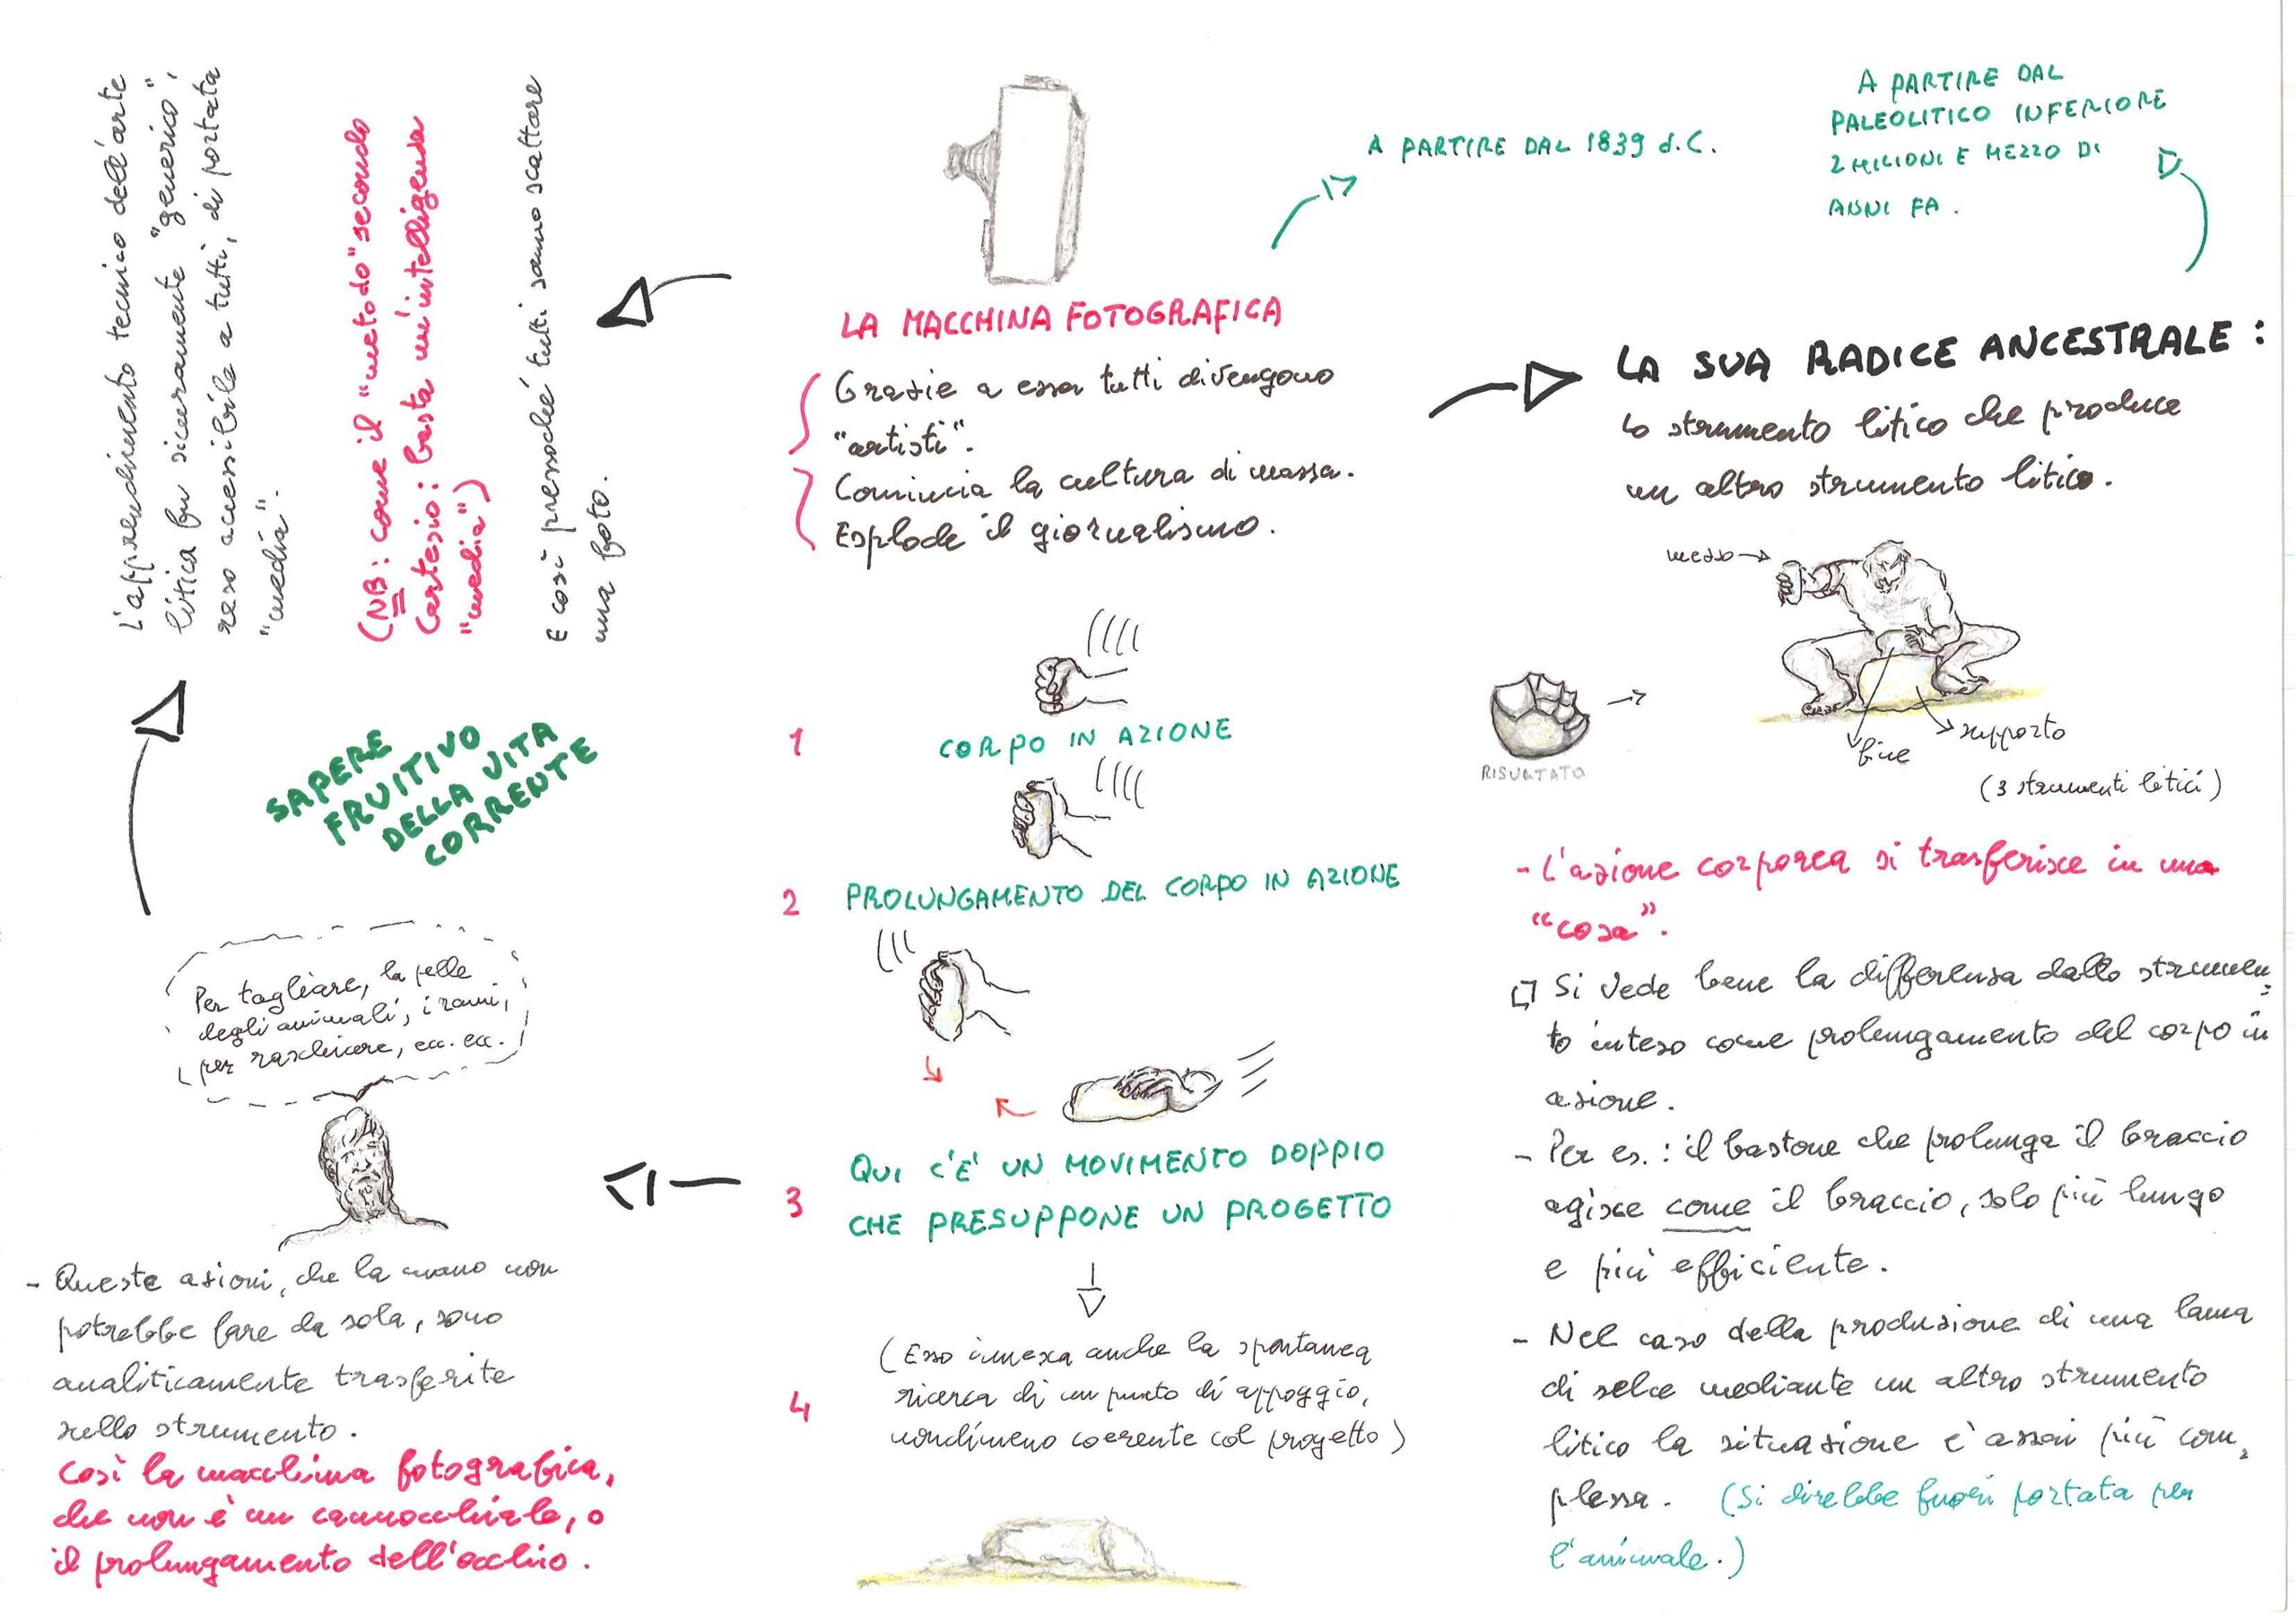 LA MACCHINA FOTOGRAFICA
Grazie a essa tutti divengono
"artisti".
Comincia la cultura di massa.
Esplode il giornalismo.
A PARTIRE DAL 1839 d.C.
A PARTIRE DAL
PALEOLITICO INFERIORE
2 MILIONI E MEZZO DI
ANNI FA.
LA SUA RADICE ANCESTRALE:
Lo strumento litico che produce
un altro strumento litico.
mezzo
fine
supporto
(3 strumenti litici)
RISULTATO
- L'azione corporea si trasferisce in una
"cosa".
Si vede bene la differenza dallo strumen,
to inteso come prolungamento del corpo in
azione.
- Per es.: il bastone che prolunga il braccio
agisce come il braccio, solo più lungo
e più efficiente.
- Nel caso della produzione di una lama
di selce mediante un altro strumento
litico la situazione è assai più com,
plessa. (Si direbbe fuori portata per
l'animale.)
1 CORPO IN AZIONE
2 PROLUNGAMENTO DEL CORPO IN AZIONE
3 QUI C'È UN MOVIMENTO DOPPIO
CHE PRESUPPONE UN PROGETTO
4 (Esso innesca anche la spontanea
ricerca di un punto di appoggio,
nondimeno coerente col progetto)
Per tagliare, la pelle
degli animali, i rami,
per raschiare, ecc. ecc.
- Queste azioni, che la mano non
potrebbe fare da sola, sono
analiticamente trasferite
nello strumento.
Così la macchina fotografica,
che non è un cannocchiale, o
il prolungamento dell'occhio.
SAPERE
FRUITIVO
DELLA VITA
CORRENTE
L'apprendimento tecnico dell'arte
litica fu sicuramente "generico",
reso accessibile a tutti, di portata
"media".
(NB: come il "metodo" secondo
Cartesio: basta un'intelligenza
"media")
E così pressoché tutti sanno scattare
una foto.